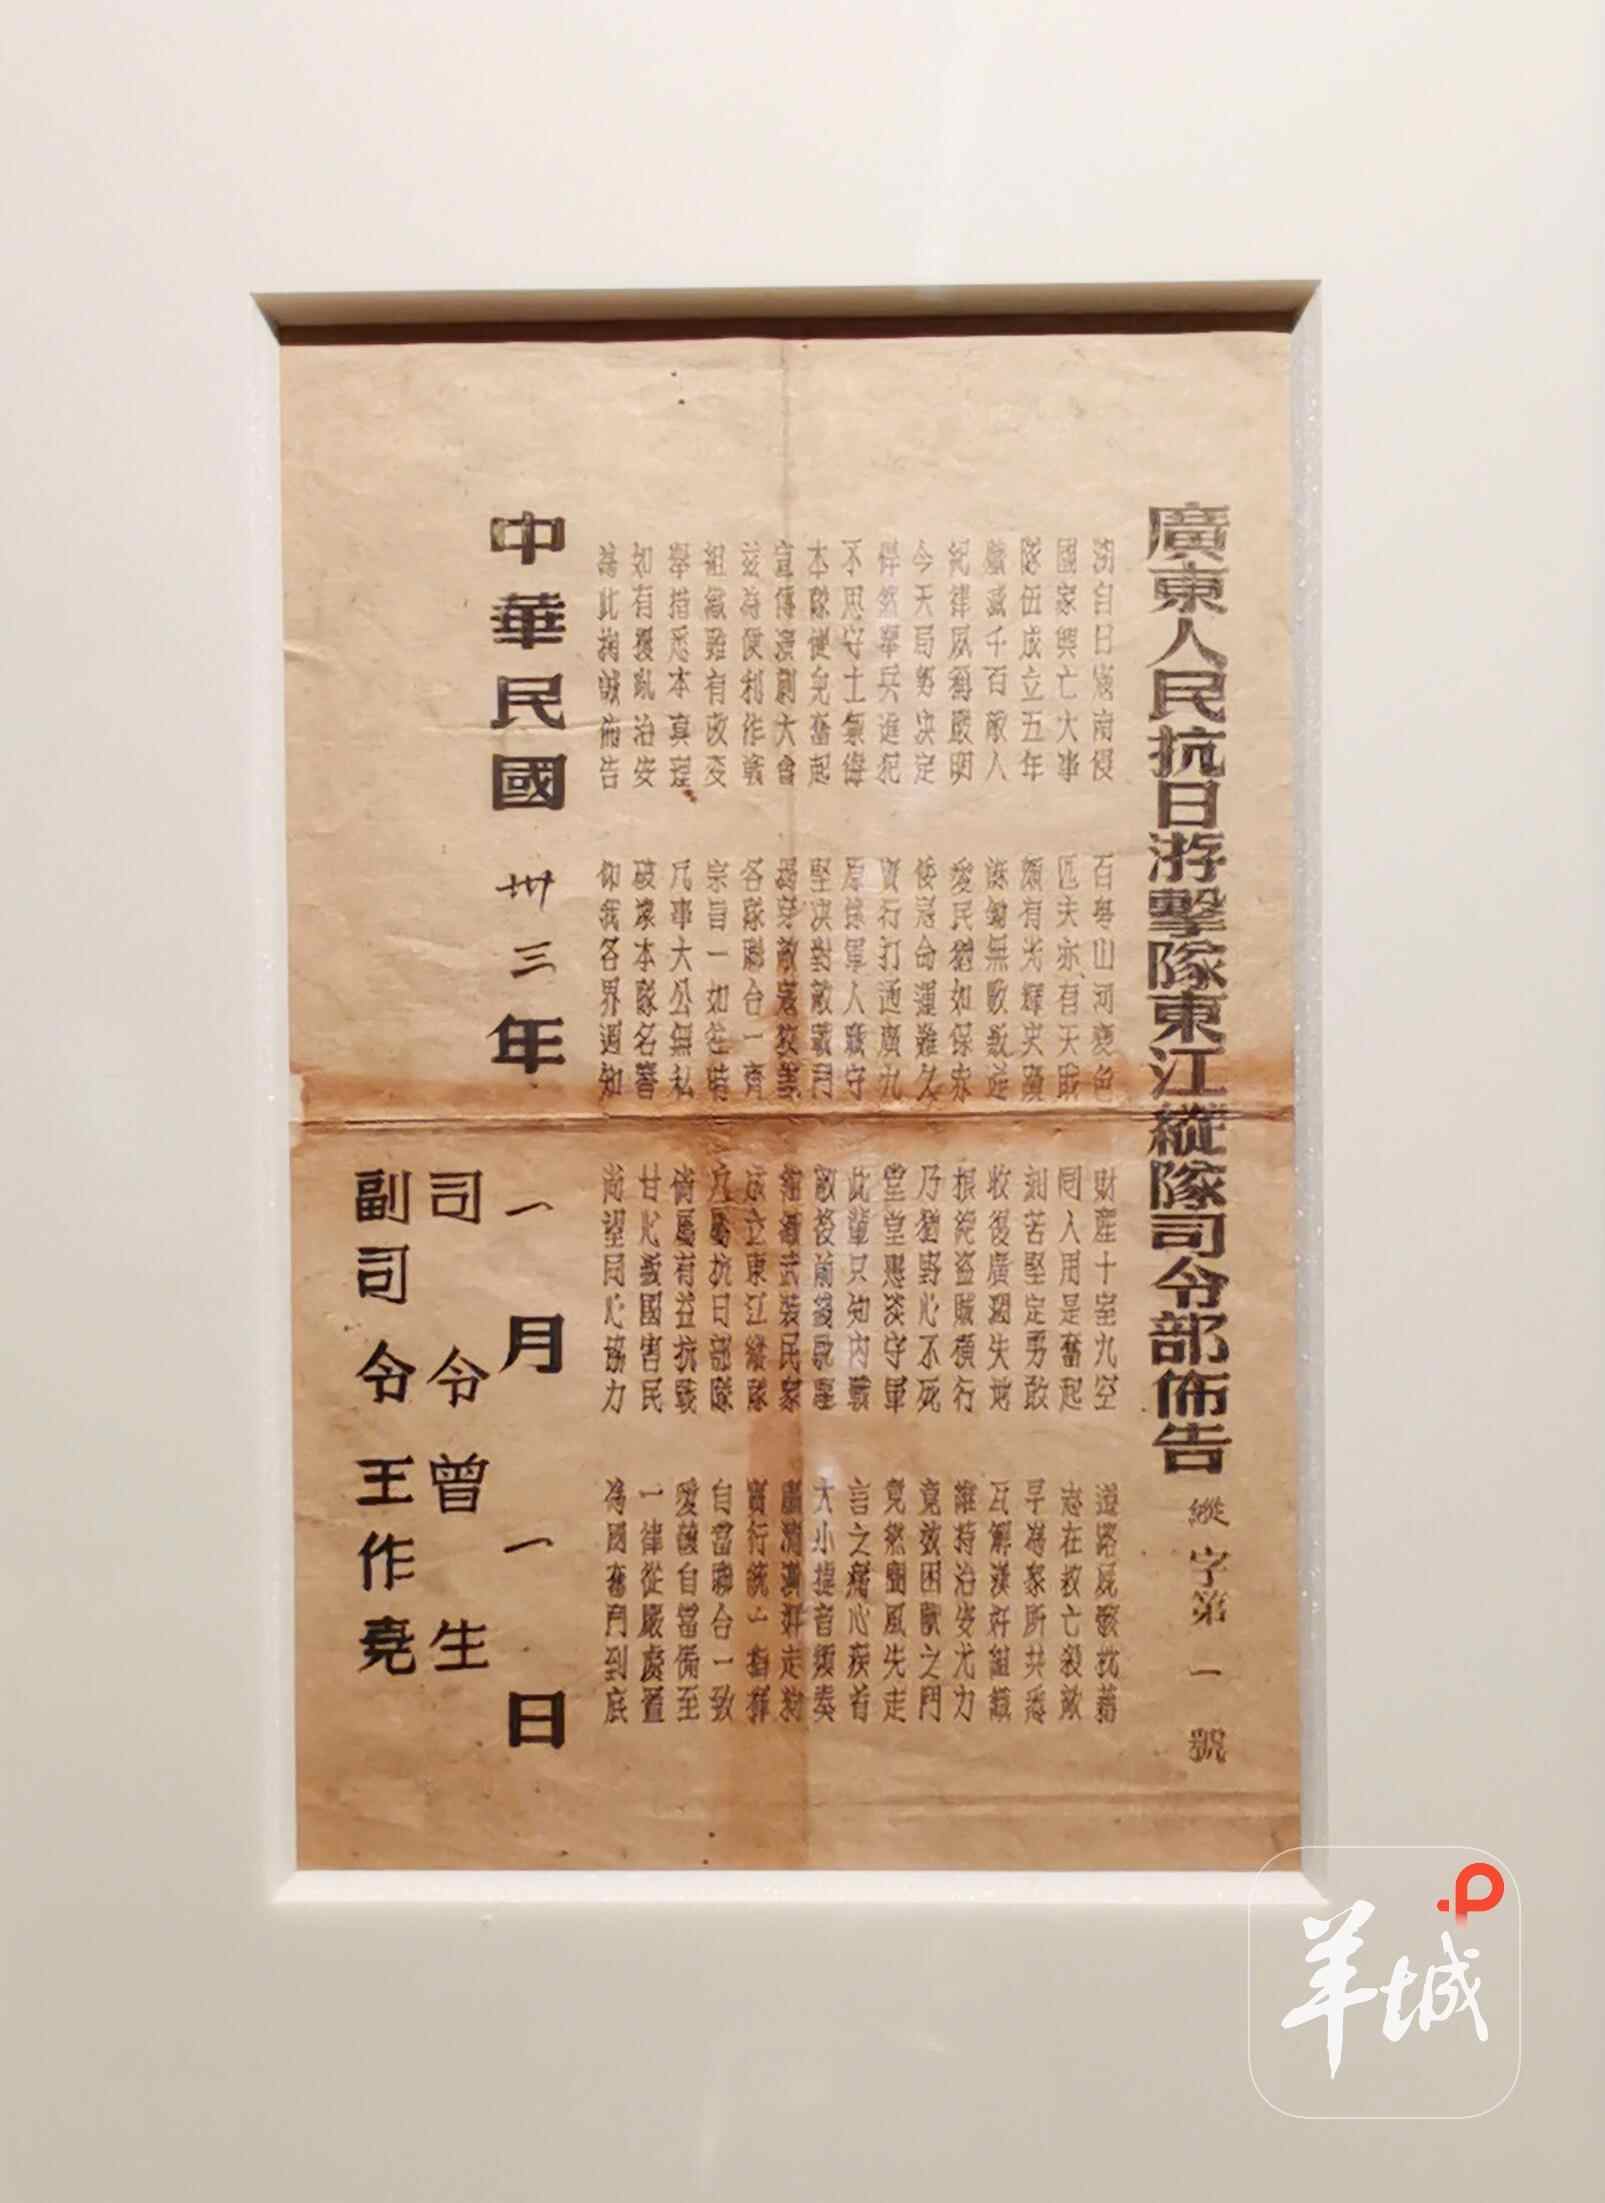 廣東人民抗日游擊隊東江縱隊司令部佈告 縱字第一號
溯自日寇南侵 百粵山河變色 財產十室九空 道路屍骸枕藉
國家興亡大事 匹夫亦有天職 同人用是奮起 志在救亡殺敵
隊伍成立五年 頗有光輝史蹟 刻苦堅定勇敢 早為眾所共悉
殲滅千百敵人 誅鋤無數叛逆 收復廣濶失地 瓦解漢奸組織
紀律夙稱嚴明 愛民猶如保赤 根絕盜賊橫行 維持治安尤力
今天局勢決定 倭寇命運難久 乃猶野心不死 竟效困獸之鬥
悍然舉兵進犯 實行打通廣九 堂堂惠淡守軍 竟然聞風先走
不思守土 原係軍人職守 此輩只知內戰 言之痛心疾首
本隊奮起 堅決對敵戰鬥 敵後前綫馳騁 大小捷音頻奏
宣傳演劇大會 揭穿敵寇狡謀 組織武裝民眾 肅清漢奸走狗
茲為便利作戰 各隊聯合一齊 成立東江縱隊 實行統一指揮
組織雖有改變 宗旨一如往時 凡屬抗日部隊 自當聯合一致
舉措悉本真理 凡事大公無私 倘屬有益抗戰 愛護自當備至
如有擾亂治安 破壞本隊名譽 甘心叛國害民 一律從嚴處置
為此掬誠佈告 仰我各界週知 尚望同心協力 為國奮鬥到底
中華民國卅三年一月一日
司令曾生
副司令王作堯
羊城